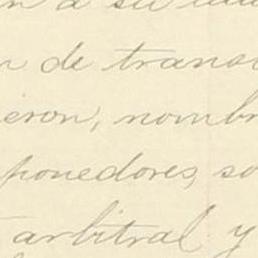 n a su
n de transa
ieron, nombr
ponedores, so
arbitral y